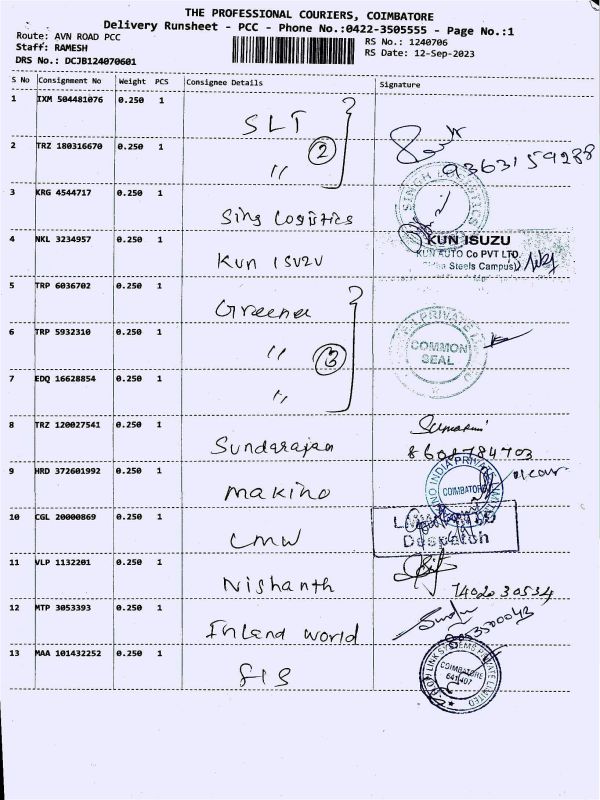 THE PROFESSIONAL COURIERS, COIMBATORE
Delivery Runsheet - PCC - Phone No.:0422-3505555 - Page No.:1
Route: AVN ROAD PCC
RS No.: 1240706
Staff: RAMESH
RS Date: 12-Sep-2023
DRS No.: DCJB124070601
S No Consignment No Weight PCS Consignee Details Signature
1 IXM 504481076 0.250 1 SLT
2 TRZ 180316670 0.250 1 〃 2
9363159288
3 KRG 4544717 0.250 1 Sing Logistics
4 NKL 3234957 0.250 1 Kun ISUZU
KUN ISUZU
KUN AUTO Co PVT LTD.
Steels Campus)
5 TRP 6036702 0.250 1 Greenea
6 TRP 5932310 0.250 1 〃 3
COMMON
SEAL
7 EDQ 16628854 0.250 1 〃
8 TRZ 120027541 0.250 1 Sundarajan
9 HRD 372601992 0.250 1 Makino
COIMBATORE
10 CGL 20000869 0.250 1 LMW
Despatch
11 VLP 1132201 0.250 1 Nishanth
7402030534
12 MTP 3053393 0.250 1 Inland world
13 MAA 101432252 0.250 1 GIS
COIMBATORE
641 407